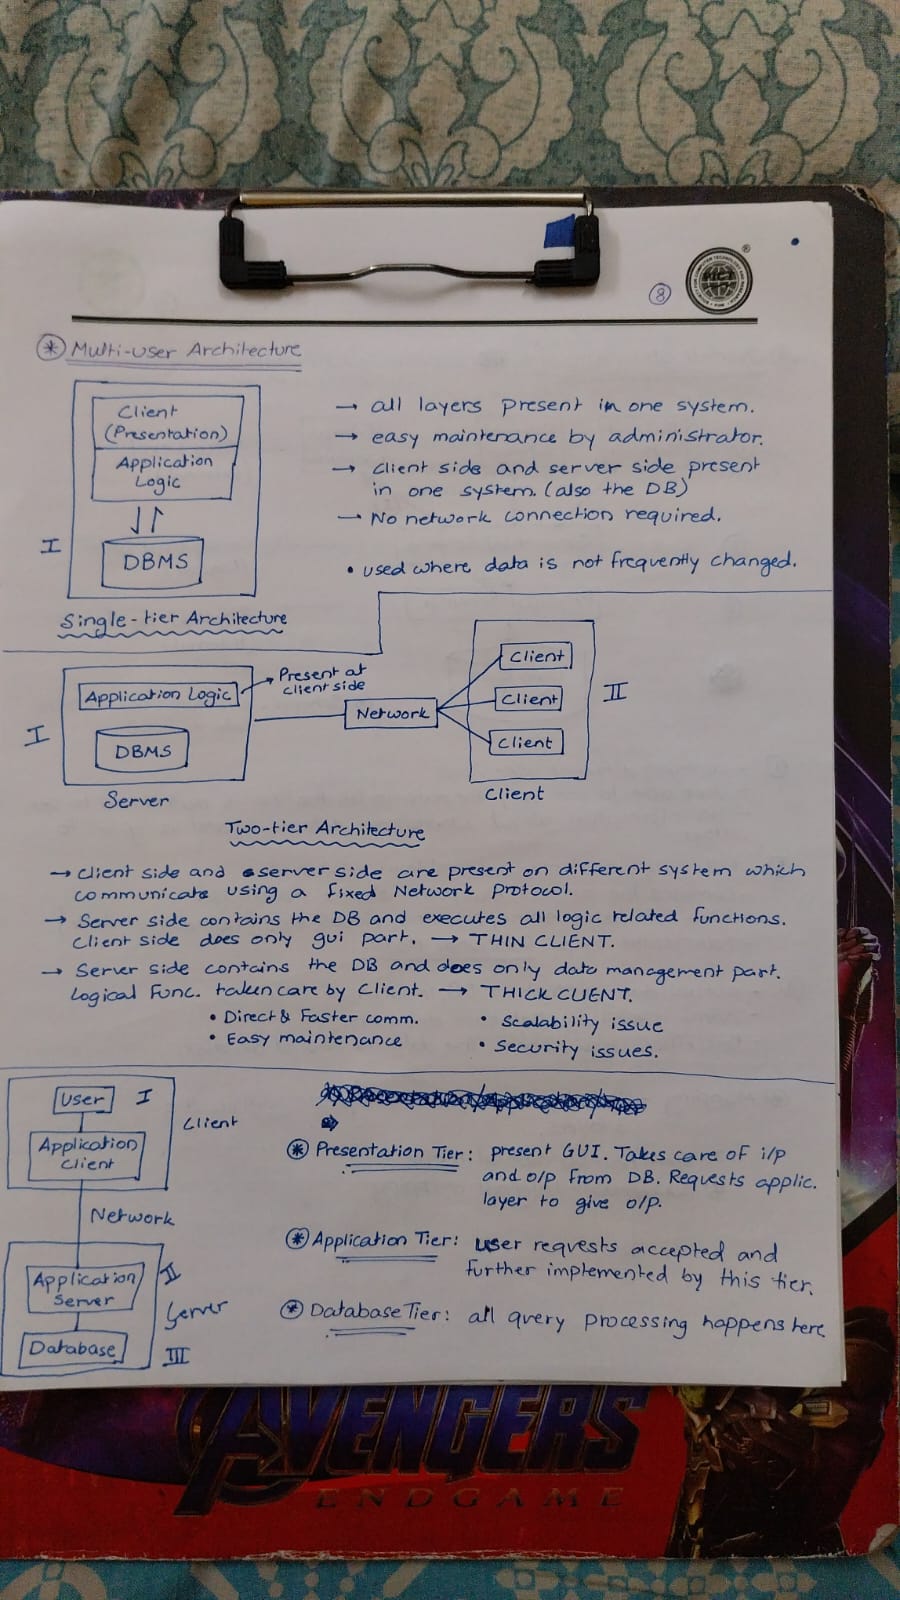 8
®
* Multi-user Architecture
Client
(Presentation)
Application
Logic
DBMS
I
Single-tier Architecture
→ all layers present in one system.
→ easy maintenance by administrator.
→ client side and server side present
in one system. (also the DB)
→ No network connection required.
• used where data is not frequently changed.
Application Logic
→ Present at
client side
DBMS
I
Server
Network
Client
Client
Client
II
Client
Two-tier Architecture
→ Client side and server side are present on different system which
communicate using a fixed Network protocol.
→ Server side contains the DB and executes all logic related functions.
Client side does only gui part. → THIN CLIENT.
→ Server side contains the DB and does only data management part.
Logical Func. taken care by Client. → THICK CLIENT.
• Direct & Faster comm.
• Easy maintenance
• Scalability issue
• Security issues.
User I
Application
Client
Client
Network
Application
Server
II
Server
Database
III
* Presentation Tier: present GUI. Takes care of i/p
and o/p from DB. Requests applic.
layer to give o/p.
* Application Tier: user requests accepted and
further implemented by this tier.
* Database Tier: all query processing happens here
AVENGERS
ENDGAME